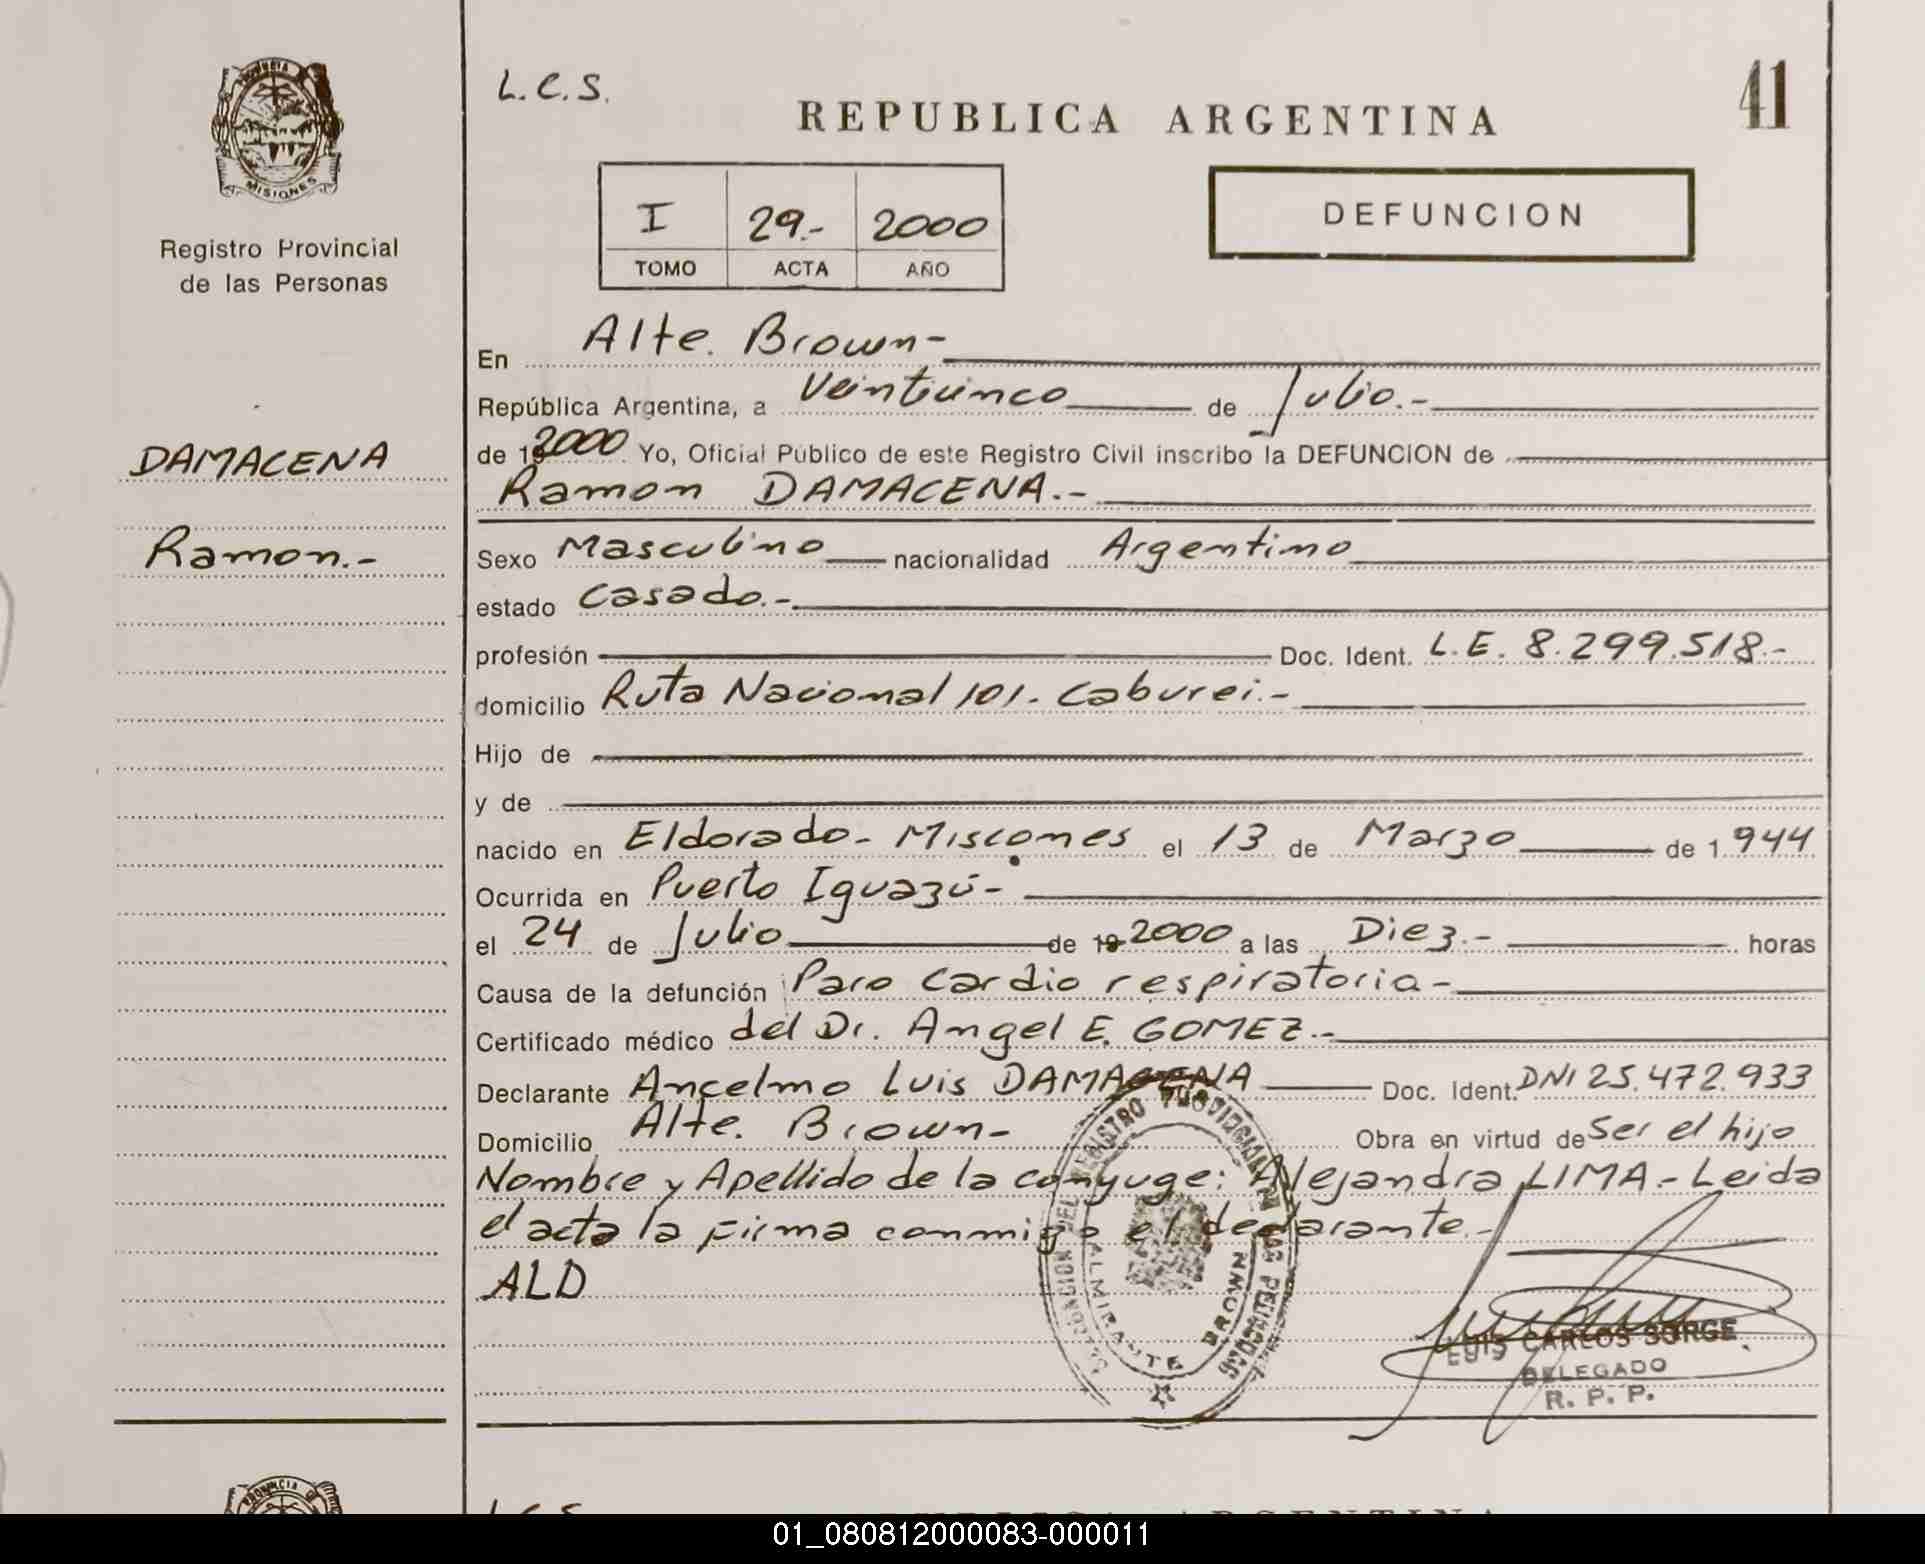 PROVINCIA
MISIONES
Registro Provincial
de las Personas
DAMACENA
Ramon.-
L.C.S.
REPUBLICA ARGENTINA
41
I 29.- 2000
TOMO ACTA AÑO
DEFUNCION
En Alte. Brown-
República Argentina, a Veinticinco de Julio.-
de 19 2000 Yo, Oficial Público de este Registro Civil inscribo la DEFUNCION de
Ramon DAMACENA.-
Sexo Masculino nacionalidad Argentino
estado Casado.-
profesión Doc. Ident. L.E. 8.299.518.-
domicilio Ruta Nacional 101. Caburei.-
Hijo de
y de
nacido en Eldorado- Misiones el 13 de Marzo de 1.944
Ocurrida en Puerto Iguazú-
el 24 de Julio de 19 2000 a las Diez.- horas
Causa de la defunción Paro Cardio respiratoria-
Certificado médico del Dr. Angel E. GOMEZ.-
Declarante Ancelmo Luis DAMACENA Doc. Ident. DNI 25.472.933
Domicilio Alte. Brown- Obra en virtud de Ser el hijo
Nombre y Apellido de la conyuge: Alejandra LIMA.- Leida
el acta la firma conmigo el declarante.-
ALD
DEL REGISTRO PROVINCIAL DE LAS PERSONAS
ALMIRANTE BROWN
LUIS CARLOS SORGE
DELEGADO
R. P. P.
PROVINCIA
L.C.S.
REPUBLICA ARGENTINA
01_080812000083-000011